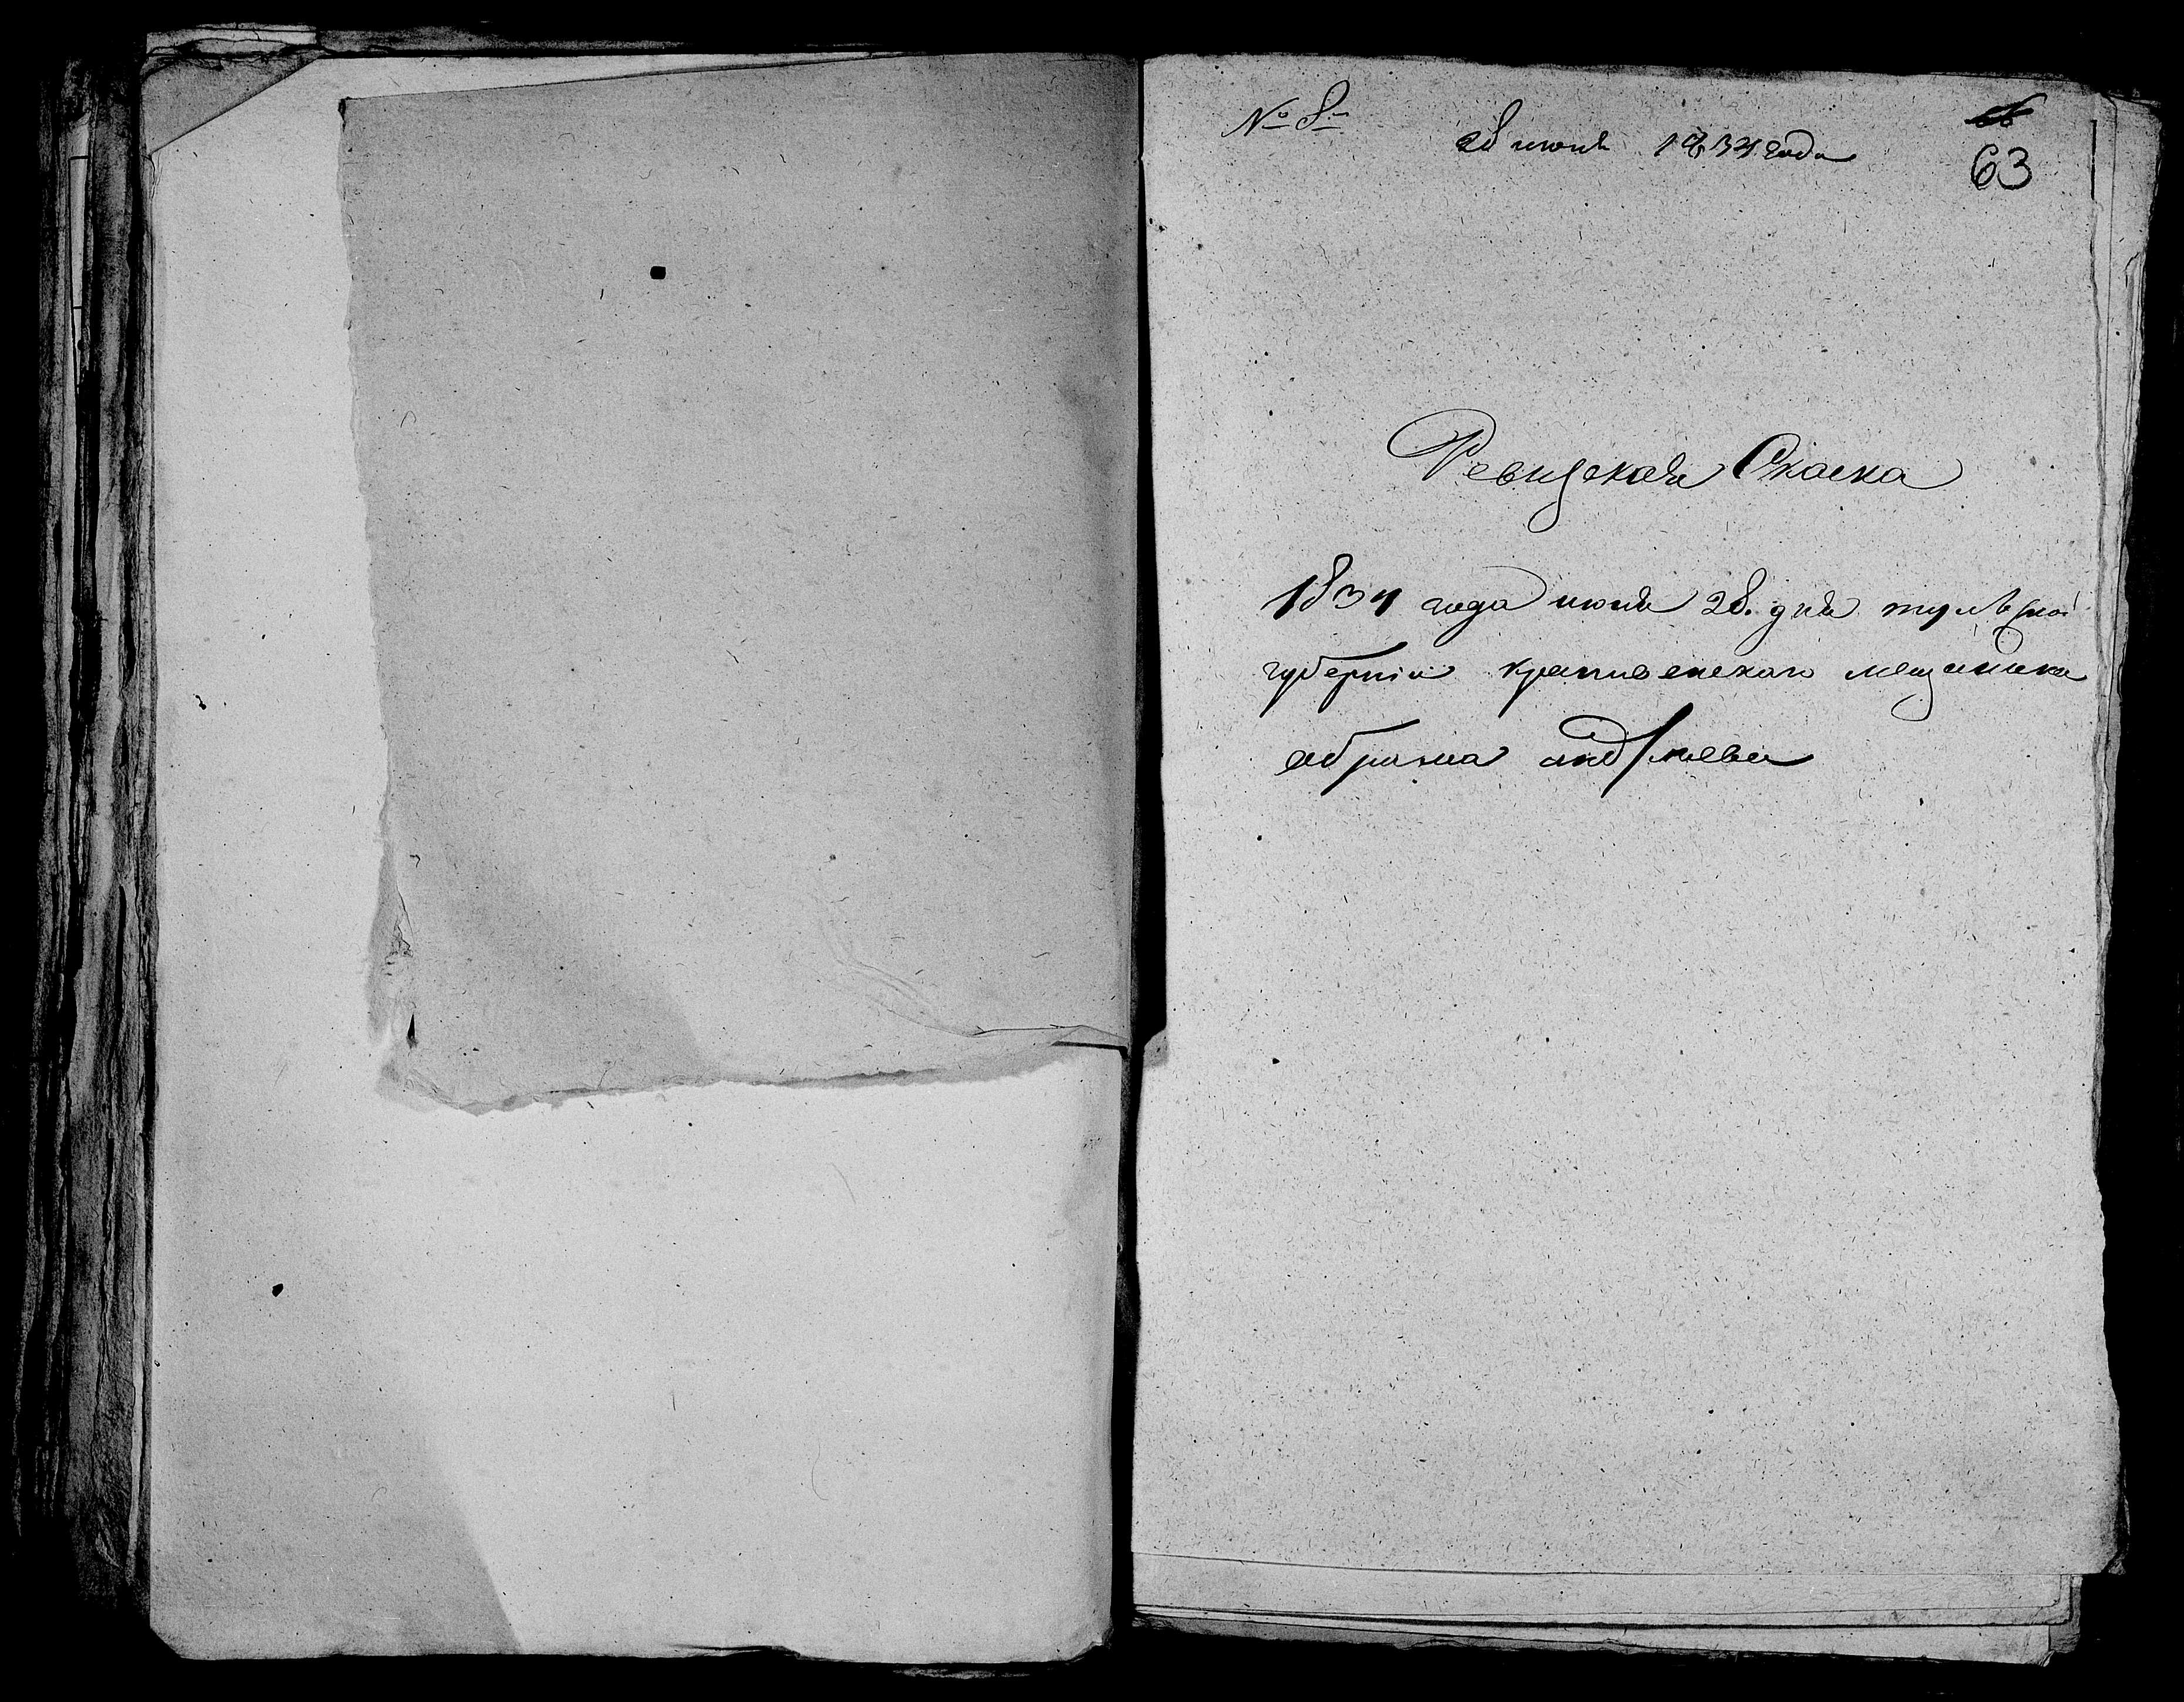 № 8й
28 июня 1834 года
63
Ревизская Скаска
1834 года июня 28. дня тульской
губернии крапивенскаго мещанина
абрама